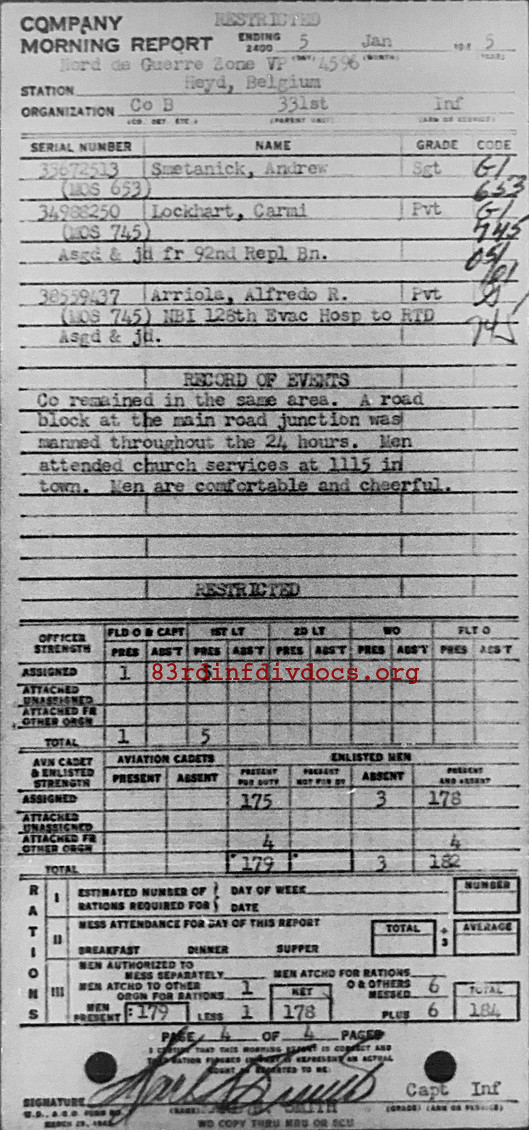 COMPANY RESTRICTED
MORNING REPORT ENDING 2400 5 Jan 5
Nord de Guerre Zone VP 4596
STATION Heyd, Belgium
ORGANIZATION Co B 331st Inf
(CO. DET. ETC.) (PARENT UNIT) (ARM OR SERVICE)
SERIAL NUMBER NAME GRADE CODE
35672513 Smetanick, Andrew Sgt G1
(MOS 653) 653
34988250 Lockhart, Carmi Pvt G1
(MOS 745) 745
Asgd & jd fr 92nd Repl Bn. 051
101
38559437 Arriola, Alfredo R. Pvt
(MOS 745) NBI 128th Evac Hosp to RTD 745
Asgd & jd.
RECORD OF EVENTS
Co remained in the same area. A road
block at the main road junction was
manned throughout the 24 hours. Men
attended church services at 1115 in
town. Men are comfortable and cheerful.
RESTRICTED
OFFICER STRENGTH FLD O & CAPT 1ST LT 2D LT WO FLT O
PRES ABS'T PRES ABS'T PRES ABS'T PRES ABS'T PRES ABS'T
ASSIGNED 1 83rdinfdivdocs.org
ATTACHED UNASSIGNED
ATTACHED FR OTHER ORGN
TOTAL 1 5
AVN CADET & ENLISTED STRENGTH AVIATION CADETS ENLISTED MEN
PRESENT ABSENT PRESENT FOR DUTY PRESENT NOT FOR DY ABSENT PRESENT AND ABSENT
ASSIGNED 175 3 178
ATTACHED UNASSIGNED
ATTACHED FR OTHER ORGN 4 4
TOTAL 179 3 182
RATIONS
I ESTIMATED NUMBER OF RATIONS REQUIRED FOR DAY OF WEEK DATE NUMBER
II MESS ATTENDANCE FOR DAY OF THIS REPORT TOTAL ÷ 3 AVERAGE
BREAKFAST DINNER SUPPER
III MEN AUTHORIZED TO MESS SEPARATELY MEN ATCHD FOR RATIONS
MEN ATCHD TO OTHER ORGN FOR RATIONS 1 NET O & OTHERS MESSED 6 TOTAL
MEN PRESENT 179 LESS 1 178 PLUS 6 184
PAGE 4 OF 4 PAGES
I CERTIFY THAT THIS MORNING REPORT IS CORRECT AND
SIGNATURE SMITH Capt Inf
(NAME) (GRADE) (ARM OR SERVICE)
W.D., A.G.O. FORM NO.